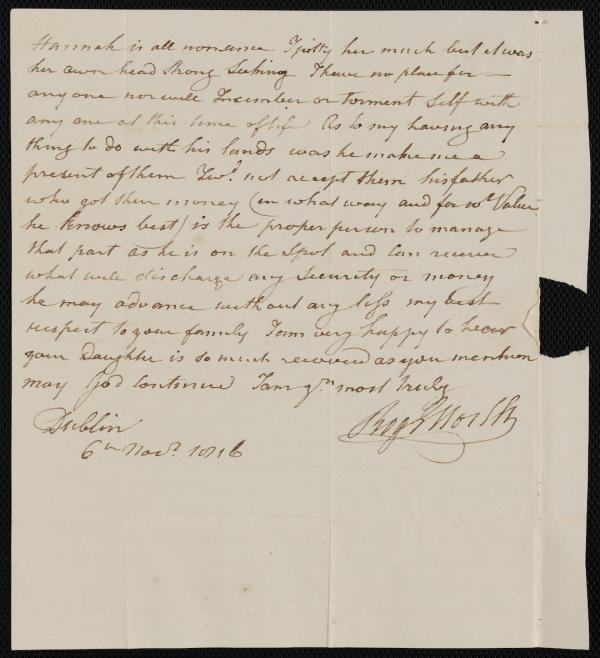 Hannah is all nonsence I pitty her much but it was
her own head strong Seeking I have no place for —
any one nor will Incumber or torment Self with
any one at this time of life As to my having any
thing to do with his lands was he make me a
present of them I wd. not accept them his father
who got them money (in what way and for wt Value
he knows best) is the proper person to manage
that part as he is on the Spot and Can recover
what will discharge any Security or money
he may advance without any loss my best
respect to your family I am very happy to hear
your Daughter is so much recovered as you mention
may God Continue I am yrs most truly
Dublin
6th Novr. 1816